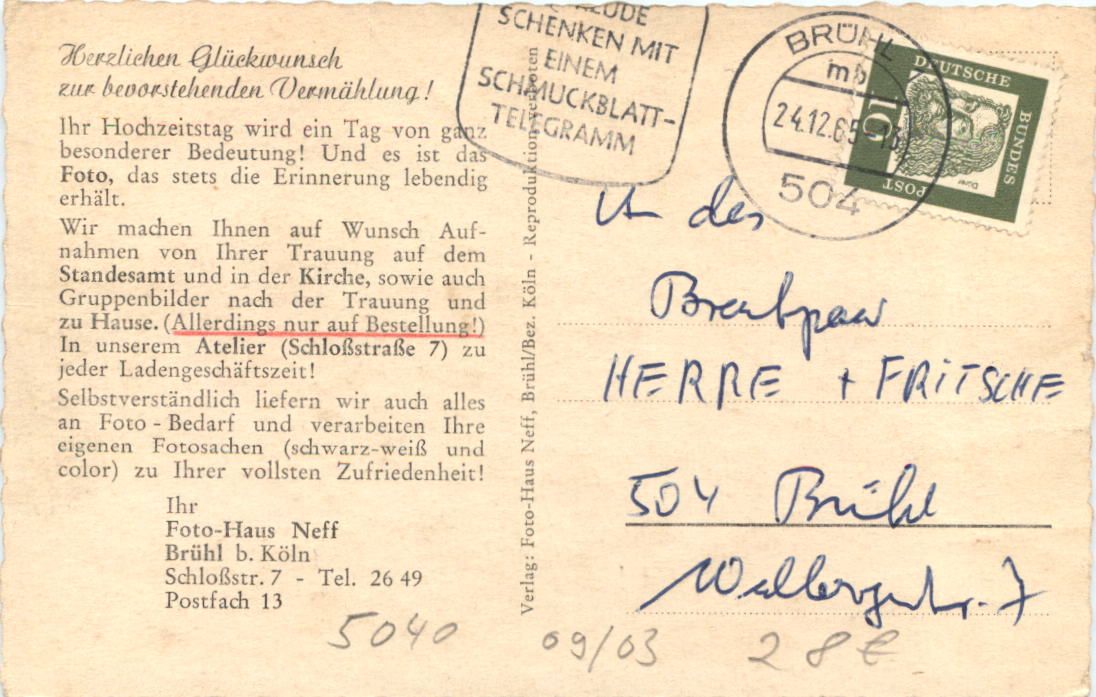 Herzlichen Glückwunsch
zur bevorstehenden Vermählung!
Ihr Hochzeitstag wird ein Tag von ganz
besonderer Bedeutung! Und es ist das
Foto, das stets die Erinnerung lebendig
erhält.
Wir machen Ihnen auf Wunsch Auf-
nahmen von Ihrer Trauung auf dem
Standesamt und in der Kirche, sowie auch
Gruppenbilder nach der Trauung und
zu Hause. (Allerdings nur auf Bestellung!)
In unserem Atelier (Schloßstraße 7) zu
jeder Ladengeschäftszeit!
Selbstverständlich liefern wir auch alles
an Foto-Bedarf und verarbeiten Ihre
eigenen Fotosachen (schwarz-weiß und
color) zu Ihrer vollsten Zufriedenheit!
Ihr
Foto-Haus Neff
Brühl b. Köln
Schloßstr. 7 - Tel. 26 49
Postfach 13
5040 09/03 28€
Verlag: Foto-Haus Neff, Brühl/Bez. Köln - Reproduktion verboten
SCHENKEN MIT
EINEM
SCHMUCKBLATT-
TELEGRAMM
BRÜHL
mb
24.12.65
504
DEUTSCHE
BUNDES
POST
10
Dürer
An das
Brautpaar
HERRE + FRITSCHE
504 Brühl